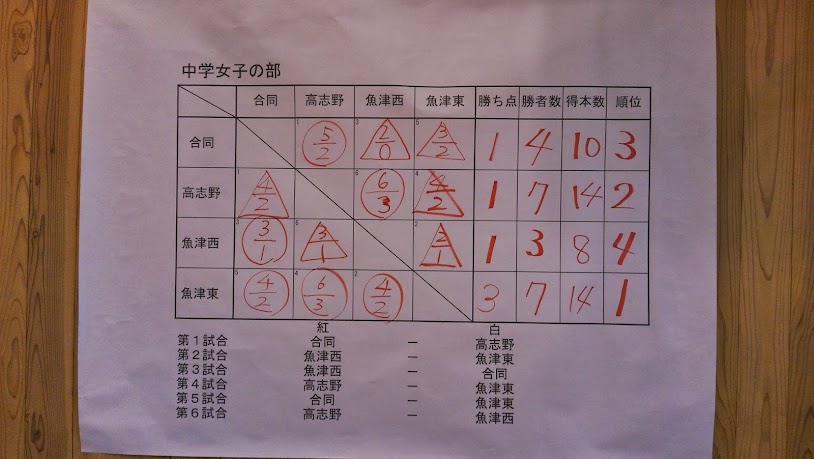 中学女子の部
合同 高志野 魚津西 魚津東 勝ち点 勝者数 得本数 順位
合同 1 5/2 3 2/0 5 3/2 1 4 10 3
高志野 1 4/2 6 6/3 4 4/2 1 7 14 2
魚津西 3 3/1 6 3/1 2 3/1 1 3 8 4
魚津東 5 4/2 4 6/3 2 4/2 3 7 14 1
紅 白
第1試合 合同 ー 高志野
第2試合 魚津西 ー 魚津東
第3試合 魚津西 ー 合同
第4試合 高志野 ー 魚津東
第5試合 合同 ー 魚津東
第6試合 高志野 ー 魚津西